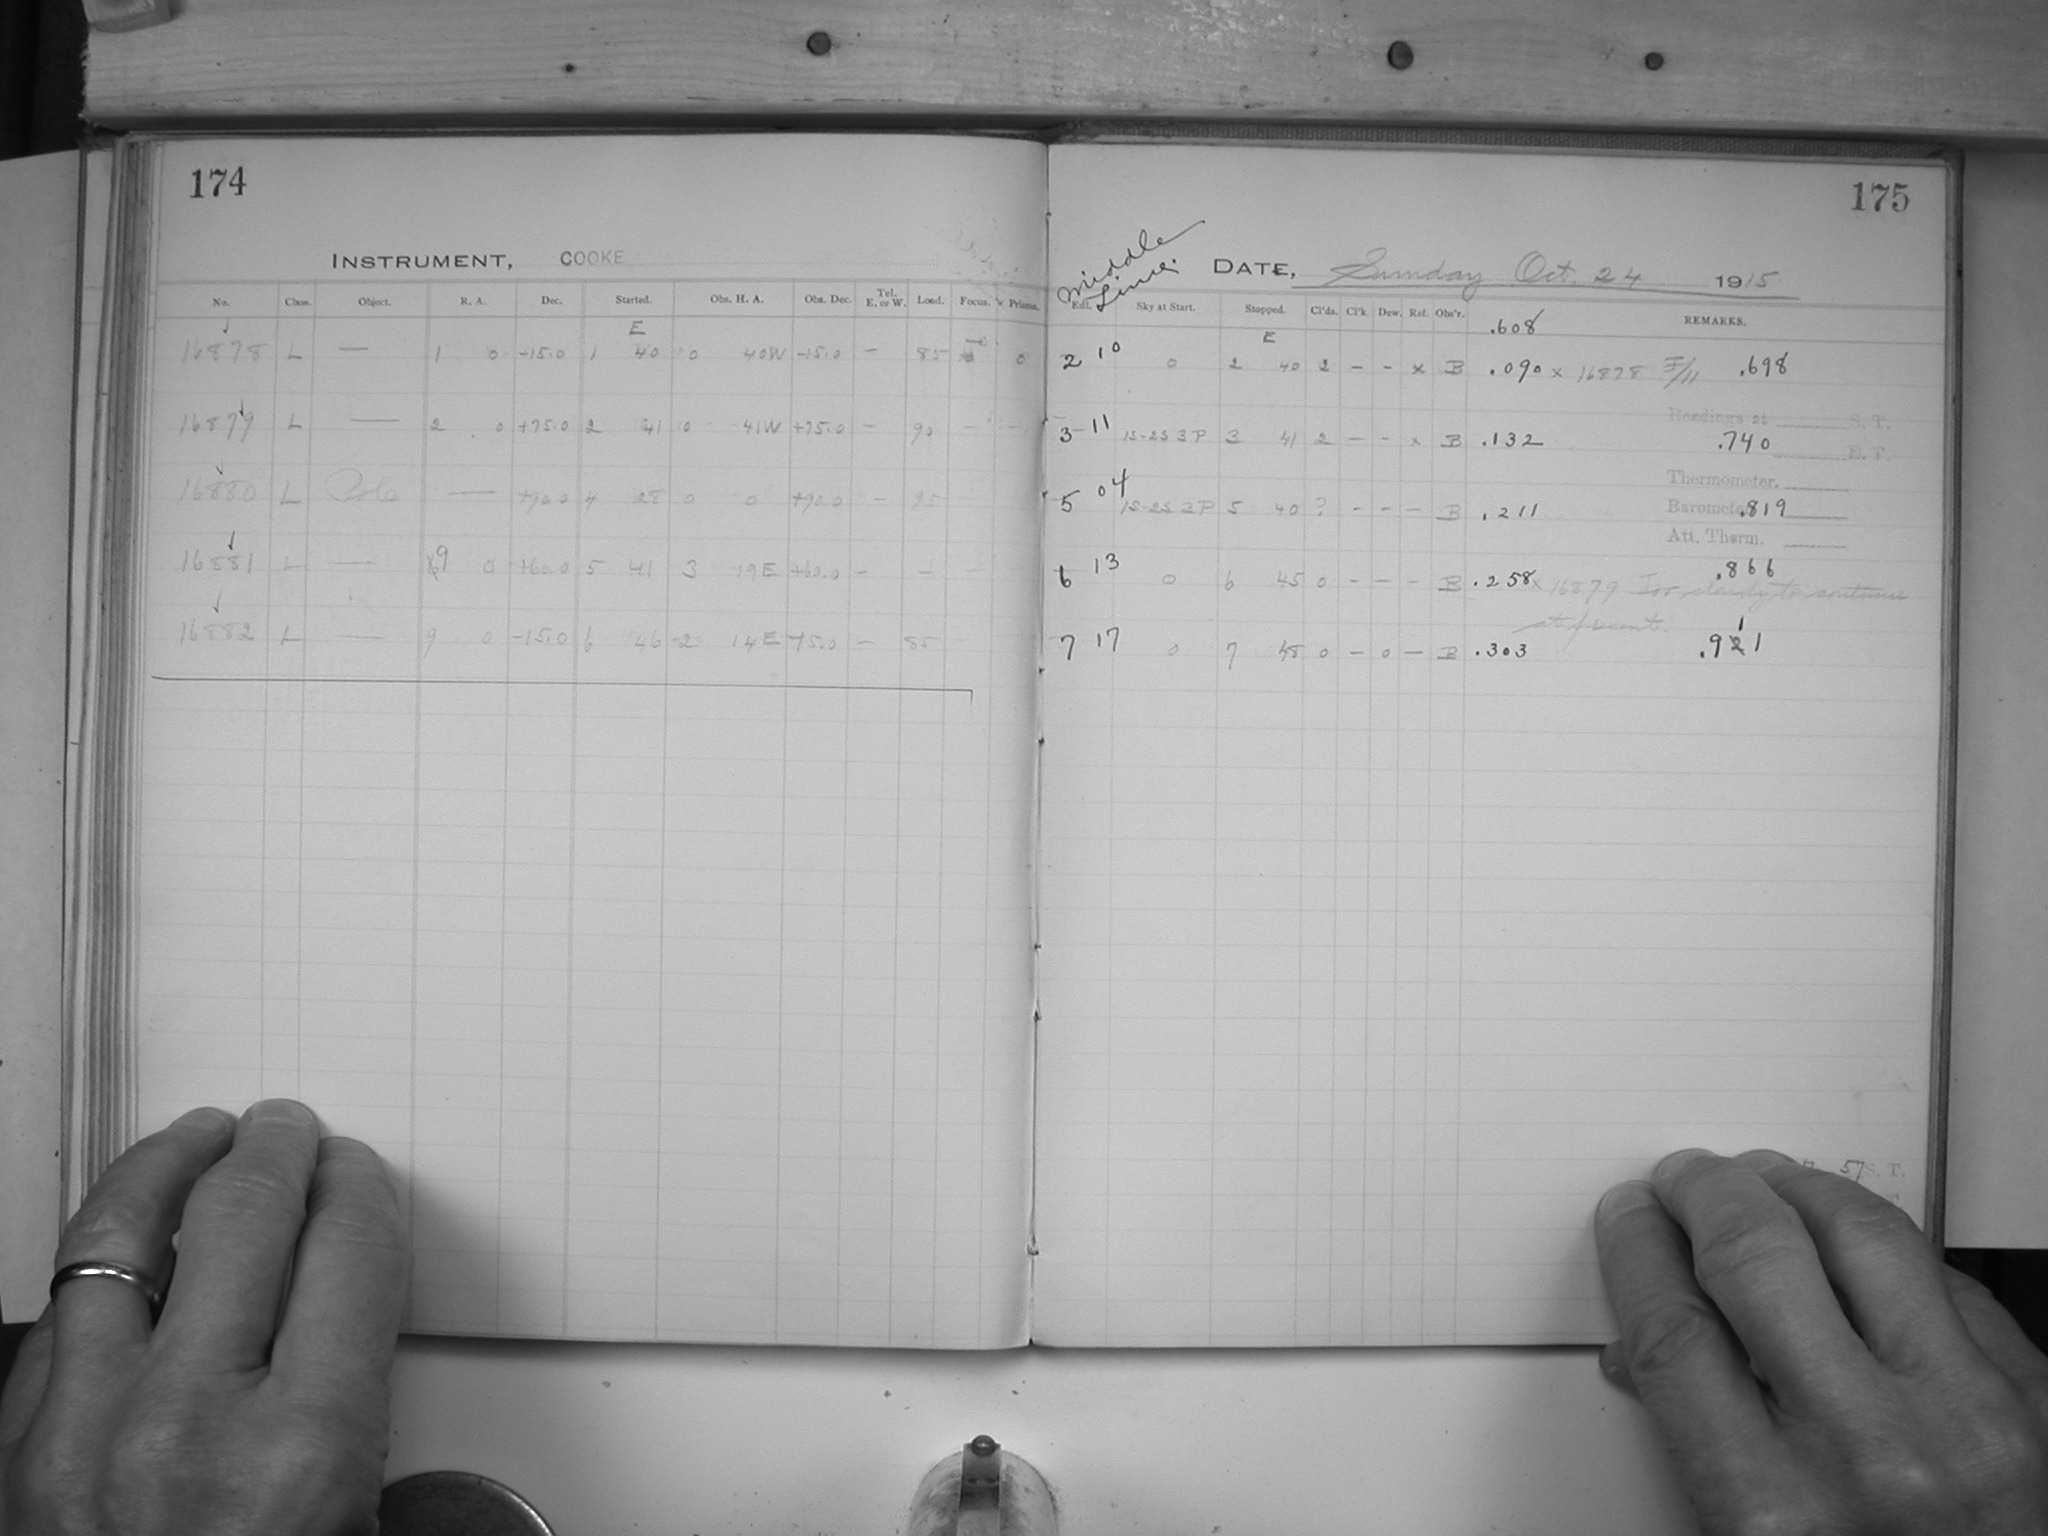 174
INSTRUMENT, COOKE
No. Class. Object. R. A. Dec. Started. Obs. H. A. Obs. Dec. Tel. E. or W. Load. Focus. Prisms.
E
16878 L — 1 0 -15.0 1 40 0 40W -15.0 — 85 0
16879 L — 2 0 +75.0 2 41 0 41W +75.0 — 90 —
16880 L Pole — +90.0 4 28 0 0 +90.0 — 95
16881 L — 9 0 +60.0 5 41 3 19E +60.0 — —
16882 L — 9 0 -15.0 6 46 2 14E -15.0 — 85
175
Middle
Time.
DATE, Sunday Oct. 24 1915
Exp. Sky at Start. Stopped. Cl'ds. Cl'k Dew. Ref. Obs'r. REMARKS.
.608
E
2 10 0 2 40 2 - - x B .090 x 16878 F/11 .698
Readings at S. T.
3 11 1S-2S 3P 3 41 2 - - x B .132 .740
E. T.
Thermometer.
5 04 1S-2S 3P 5 40 ? - - - B .211 Barometer .819
Att. Therm.
6 13 0 6 45 0 - - - B .258 x 16879 Too cloudy to continue .866
at present.
7 17 0 7 48 0 - 0 - B .303 .921
1
57 S. T.